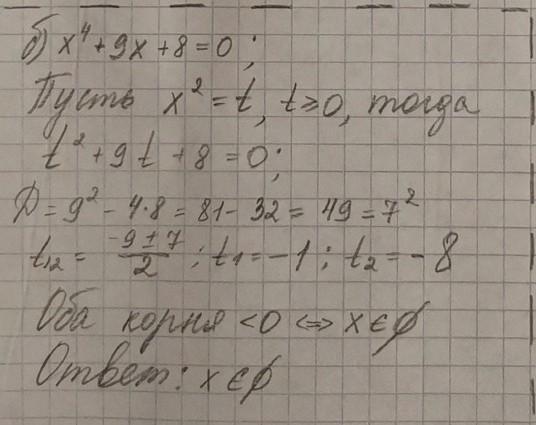 б) x⁴ + 9x + 8 = 0 ;
Пусть x² = t, t ≥ 0, тогда
t² + 9t + 8 = 0;
D = 9² - 4·8 = 81 - 32 = 49 = 7²
t₁₂ = (-9 ± 7)/2 ; t₁ = -1 ; t₂ = -8
Оба корня < 0 <=> x ∈ ∅
Ответ: x ∈ ∅